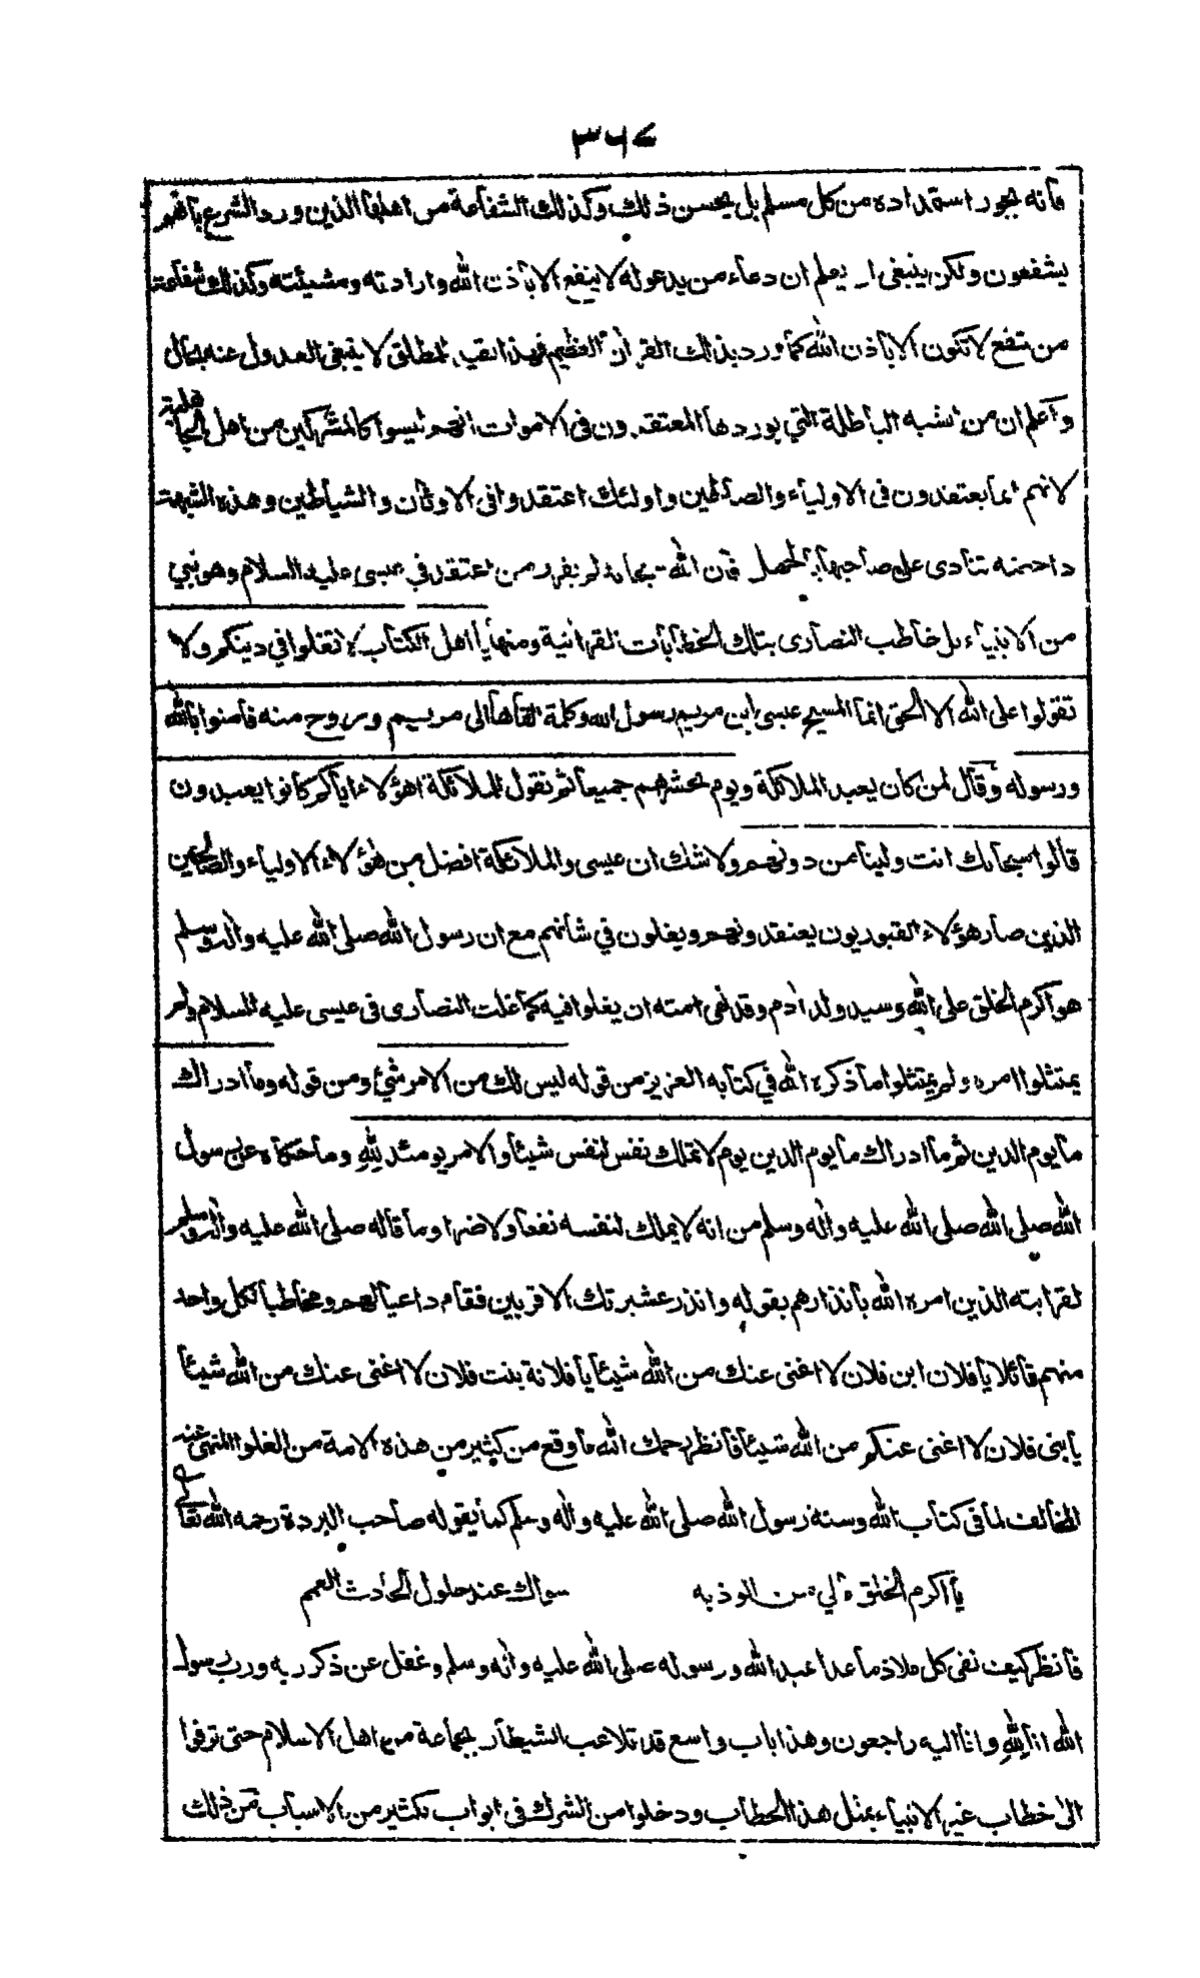 ٣٦٧
فانه يجوز استمداده من كل مسلم بل يحسن ذلك وكذلك الشفاعة من اهلها الذين ورد الشرع بانهم
يشفعون ولكن ينبغي ان يعلم ان دعاء من يدعو له لا ينفع الا باذن الله وارادته ومشيئته وكذلك شفاعة
من تنفع لا تكون الا باذن الله كما ورد بذلك القران العظيم فهذا تقييد للمطلق لا ينبغي العدول عنه بحال
واعلم ان من الشبه الباطلة التي يوردها المعتقدون في الاموات انهم ليسوا كالمشركين من اهل الجاهلية
لانهم انما يعتقدون في الاولياء والصالحين واولئك اعتقدوا في الاوثان والشياطين وهذه الشبهة
داحضة تنادى على صاحبها بالجهل فان الله سبحانه لم يغفر من اعتقد في عيسى عليه السلام وهو نبي
من الانبياء بل خاطب النصارى بتلك الخطابات القرانية ومنها يا اهل الكتاب لا تغلوا في دينكم ولا
تقولوا على الله الا الحق انما المسيح عيسى ابن مريم رسول الله وكلمة القاها الى مريم وروح منه فامنوا بالله
ورسوله وقال لمن كان يعبد الملائكة ويوم نحشرهم جميعا ثم نقول للملائكة اهؤلاء اياكم كانوا يعبدون
قالوا سبحانك انت ولينا من دونهم ولا شك ان عيسى والملائكة افضل من هؤلاء الاولياء والصالحين
الذين صار هؤلاء القبوريون يعتقدونهم ويغلون في شانهم مع ان رسول الله صلى الله عليه واله وسلم
هو اكرم الخلق على الله وسيد ولد ادم وقد نهى امته ان يغلوا فيه كما غلت النصارى في عيسى عليه السلام ولم
يمتثلوا امره ولم يمتثلوا ما ذكره الله في كتابه العزيز من قوله ليس لك من الامر شئ ومن قوله وما ادراك
ما يوم الدين ثم ما ادراك ما يوم الدين يوم لا تملك نفس لنفس شيئا والامر يومئذ لله وما حكاه عن رسول
الله صلى الله صلى الله عليه واله وسلم من انه لا يملك لنفسه نفعا ولا ضرا وما قاله صلى الله عليه واله وسلم
لقرابته الذين امره الله بانذارهم بقوله وانذر عشيرتك الاقربين فقام داعيا لهم ومخاطبا لكل واحد
منهم قائلا يا فلان ابن فلان لا اغنى عنك من الله شيئا يا فلانة بنت فلان لا اغنى عنك من الله شيئا
يا بنى فلان لا اغنى عنكم من الله شيئا فانظر رحمك الله ما وقع من كثير من هذه الامة من الغلو المنهى عنه
المخالف لما في كتاب الله وسنة رسول الله صلى الله عليه واله وسلم كما يقوله صاحب البردة رحمه الله تعالى
يا اكرم الخلق مالي من الوذ به   سواك عند حلول الحادث العمم
فانظر كيف نفى كل ملاذ ما عدا عبد الله ورسوله صلى الله عليه واله وسلم وغفل عن ذكر ربه ورب رسول
الله انا لله وانا اليه راجعون وهذا باب واسع قد تلاعب الشيطان بجماعة من اهل الاسلام حتى ترقوا
الى خطاب غير الانبياء بمثل هذا الخطاب ودخلوا من الشرك في ابواب بكثير من الاسباب فمن ذلك